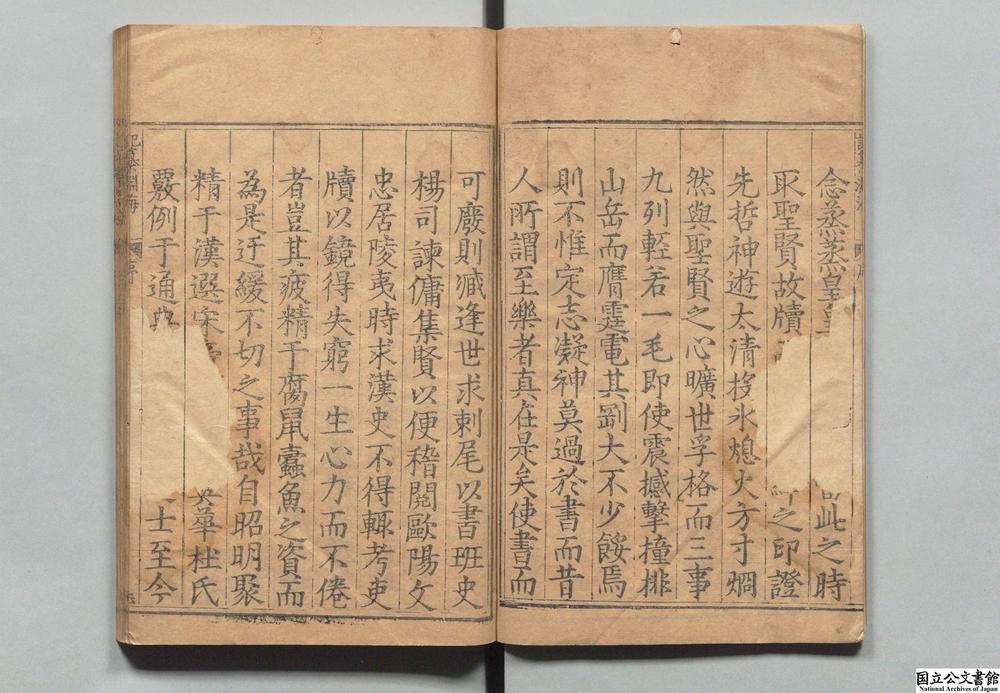 念蒸蒸皇皇 此之時
取聖賢故牘 之印證
先哲神遊太清投氷熄火方寸烱
然與聖賢之心曠世孚格而三事
九列輕若一毛即使震撼擊撞排
山岳而鴈霆電其劉大不少餒焉
則不惟定志凝神莫過於書而昔
人所謂至樂者真在是矣使書而
可廢則臧逢世求刺尾以書班史
楊司諫傭集賢以便稽閱歐陽文
忠居陵夷時求漢史不得輒考吏
牘以鏡得失窮一生心力而不倦
者豈其疲精于腐鼠蠹魚之資而
為是迂緩不切之事哉自昭明聚
精于漢選宋 英華杜氏
覈例于通典 士至今
記纂淵海
序
国立公文書館
National Archives of Japan